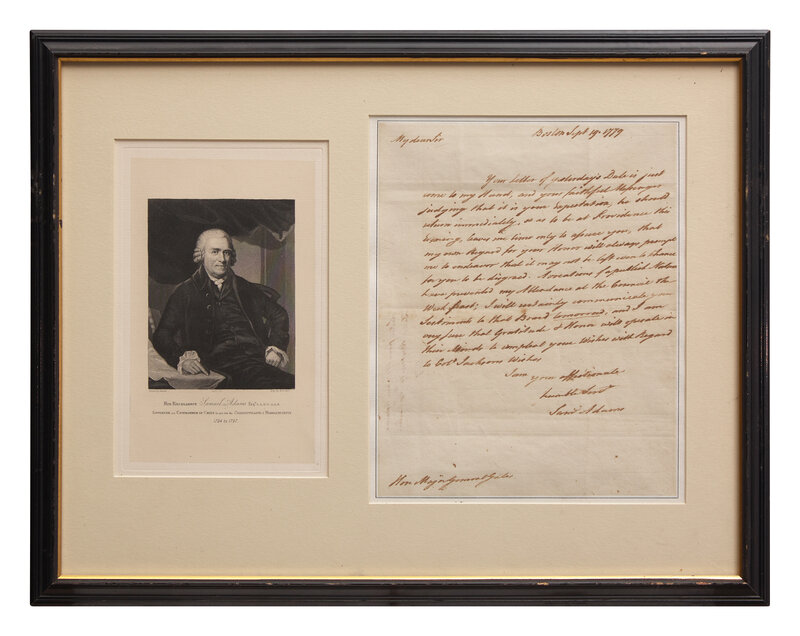 His Excellency Samuel Adams Esq.
Governor and Commander in Chief in and over the Commonwealth of Massachusetts
1794 to 1797
My dear Sir Boston Sept 19. 1779
Your Letter of yesterday's Date is just
come to my Hand, and your faithful Messenger
judging that it is your Expectation, he should
return immediately, so as to be at Providence this
Evening, leaves me time only to assure you, that
my own Regard for your Honor will always prompt
me to endeavor that it may not be left even to chance
for you to be disgraced. Avocations of a publick Nature
have prevented my Attendance at the Council the
Week past; I will certainly communicate your
Sentiments to that Board tomorrow, and I am
very sure that Gratitude & Honor will operate in
their Minds to compleat your Wishes with Regard
to Col Jacksons Wishes
I am your affectionate
humble Servt
Saml Adams
Hon Major General Gates